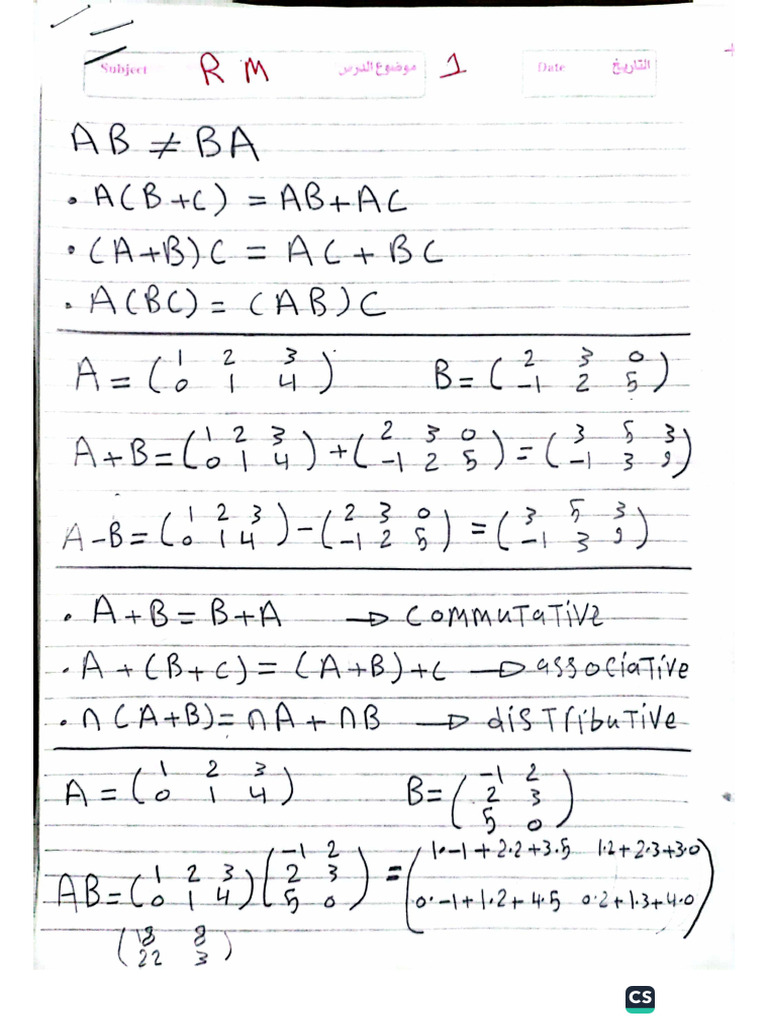 Subject R M موضوع الدرس 1 Date التاريخ
AB ≠ BA
• A(B+C) = AB+AC
• (A+B)C = AC+BC
• A(BC) = (AB)C
A = (1 2 3     B = (2 3 0
0 1 4)     -1 2 5)
A+B = (1 2 3 + (2 3 0 = (3 5 3
0 1 4)   -1 2 5)   -1 3 9)
A-B = (1 2 3 - (2 3 0 = (3 5 3
0 1 4)   -1 2 5)   -1 3 9)
• A+B = B+A → commutative
• A+(B+C) = (A+B)+C → associative
• n(A+B) = nA+nB → distributive
A = (1 2 3     B = (-1 2
0 1 4)     2 3
5 0)
AB = (1 2 3 (-1 2 = (1·-1+2·2+3·5 1·2+2·3+3·0
0 1 4) 2 3
5 0) 0·-1+1·2+4·5 0·2+1·3+4·0)
(18 8
22 3)
CS